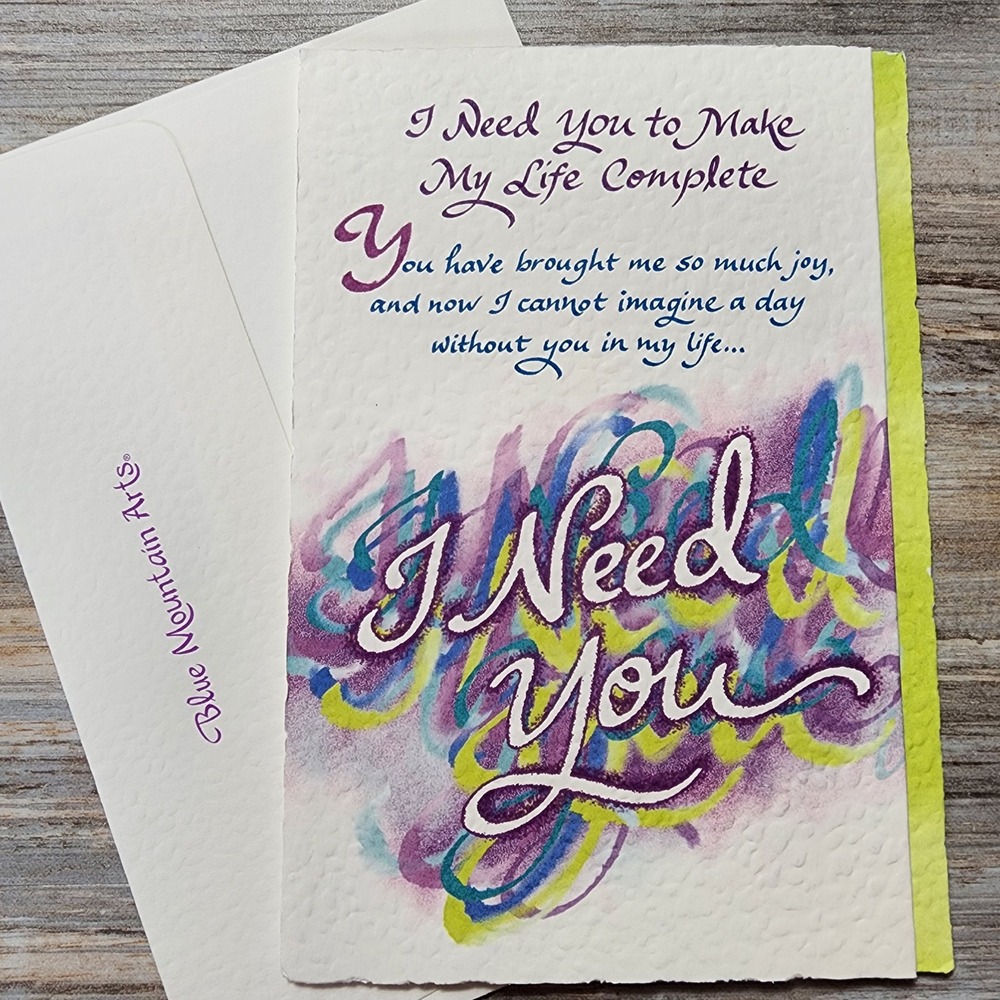 I Need You to Make
My Life Complete
You have brought me so much joy,
and now I cannot imagine a day
without you in my life...
I Need
You
Blue Mountain Arts®